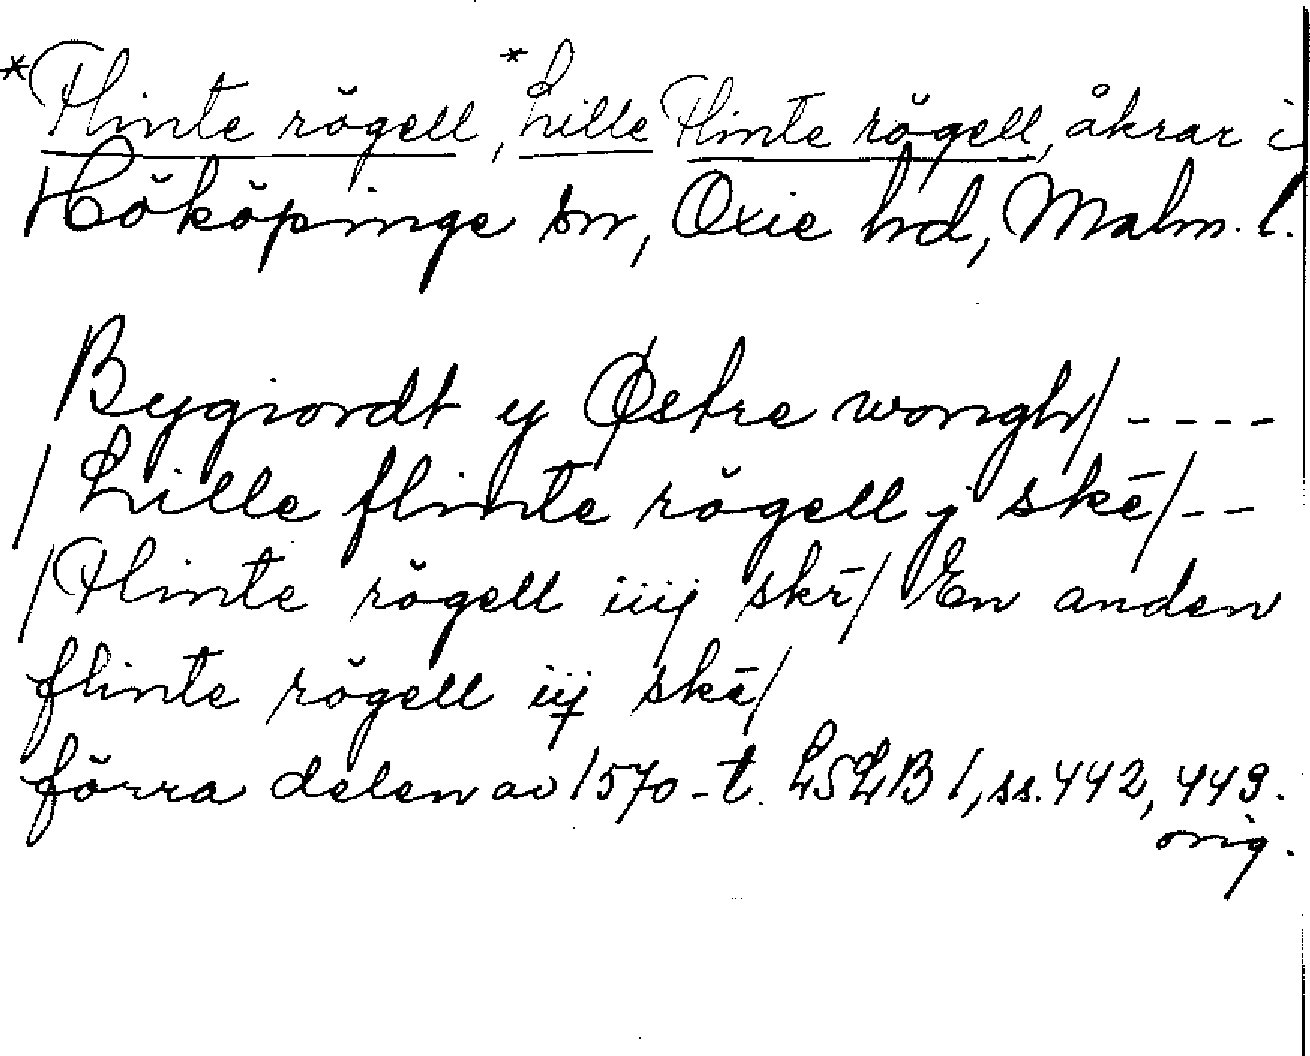 *Flinte rögell, *Lille Flinte rögell, åkrar i
Hököpinge sn, Oxie hd, Malm. l.
Bygiordt y Østre wongh/ ----
/ Lille flinte rögell j skē/--
/Flinte rögell iiij skē/ En anden
flinte rögell iij skē/
förra delen av 1570-t. LSLB 1, ss. 442, 449.
orig.